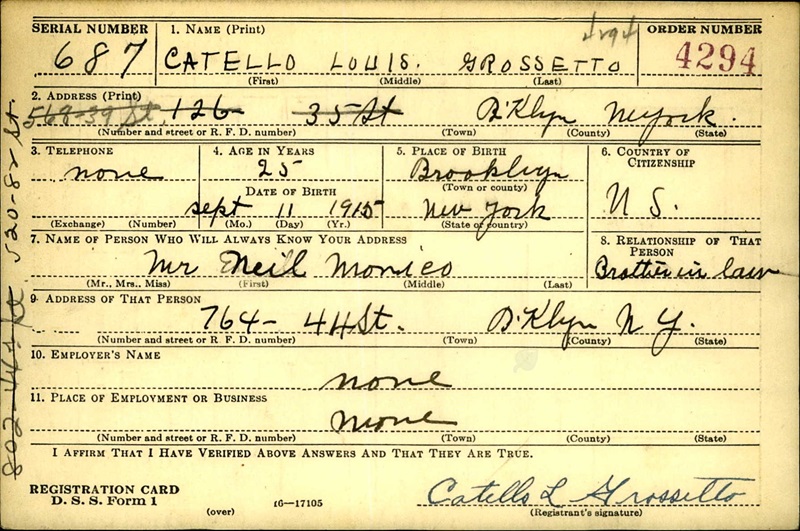 SERIAL NUMBER
687
1. NAME (Print)
CATELLO LOUIS. GROSSETTO
(First) (Middle) (Last)
4294
ORDER NUMBER
4294
2. ADDRESS (Print)
568-39 St. 126- 35 St B'Klyn New york.
(Number and street or R. F. D. number) (Town) (County) (State)
3. TELEPHONE
none
(Exchange) (Number)
4. AGE IN YEARS
25
DATE OF BIRTH
sept 11 1915
(Mo.) (Day) (Yr.)
5. PLACE OF BIRTH
Brooklyn
(Town or county)
New York
(State or country)
6. COUNTRY OF CITIZENSHIP
U S.
7. NAME OF PERSON WHO WILL ALWAYS KNOW YOUR ADDRESS
Mr Neil Monico
(Mr., Mrs., Miss) (First) (Middle) (Last)
8. RELATIONSHIP OF THAT PERSON
Brother in law
9. ADDRESS OF THAT PERSON
764- 44 St. B'Klyn N Y.
(Number and street or R. F. D. number) (Town) (County) (State)
10. EMPLOYER'S NAME
none
11. PLACE OF EMPLOYMENT OR BUSINESS
none
(Number and street or R. F. D. number) (Town) (County) (State)
I AFFIRM THAT I HAVE VERIFIED ABOVE ANSWERS AND THAT THEY ARE TRUE.
REGISTRATION CARD
D. S. S. Form 1
(over)
16—17105
Catello L Grossetto
(Registrant's signature)
802-44 St 520-82 St.